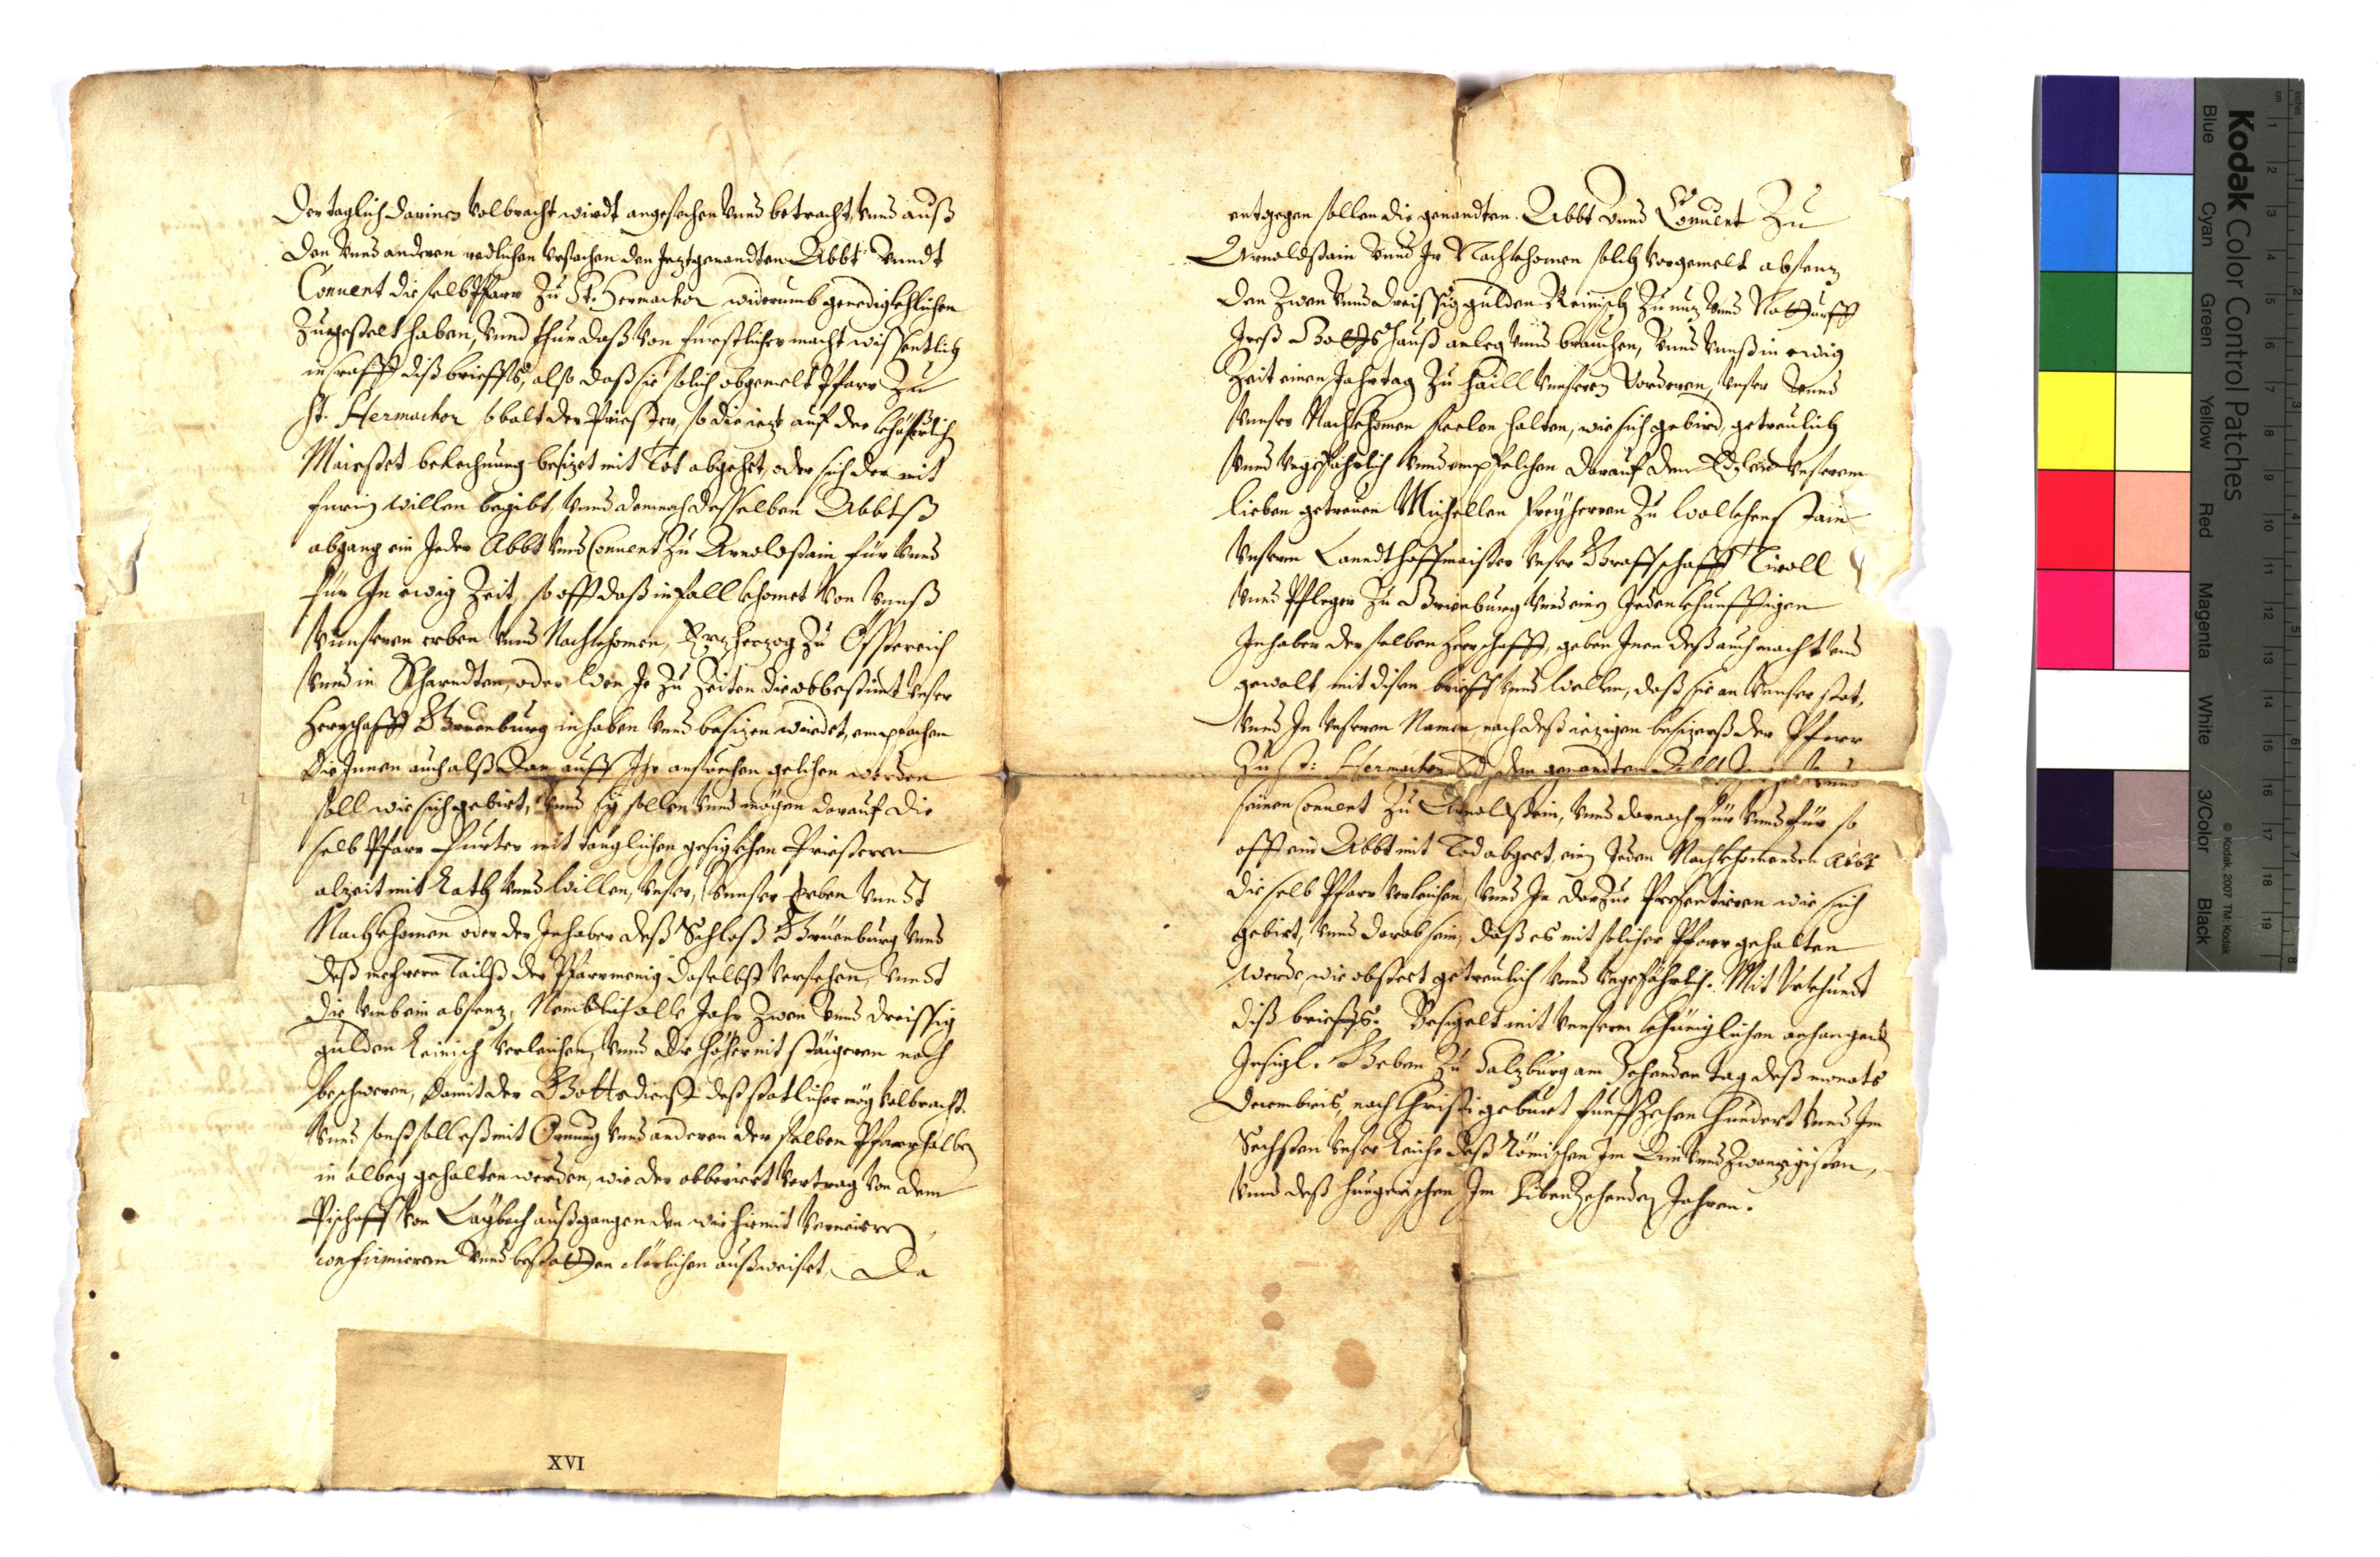 Der taglich darinen volbracht wirdt angesechen vnnd betracht, vnnd auß
den vnnd anderen redlichen vrsachen den jeztgenandten Abbt vnndt
Conuent dieselb Pfarr Zu St. Hermachor widerumb genediglichen
Zuegestelt haben, vnnd thun daß von furstlicher macht wissentlich
in crafft diß brieffs, also daß sie solich obgemelt Pfarr Zu
St. Hermachor sobalt der Priester, so die iezt auf der
Maiestet belechnung besizet mit Tot abgehet, oder sich der mit
freien willen begibt, vnnd demnach desselben Abbtß
abgang ein Jeder Abbt vnd Conuent Zu Arnoldstain für vnnd
für In ewig Zeit, so offt daß in fall khomet von vnnß
vnnseren erben vnnd Nachkhomen, Erzherzog Zu Össtereich
vnnd in Kharndten, oder wem Je Zu Zeiten die obbestimt vnser
Herrschafft Gruenburg inhaben vnnd besizen wirdet, empfachen
die Innen auch alß dan auff Ihr ansuechen gelichen werden
soll wie sich gebirt, vnnd sy sollen vnnd mögen darauf die
selb Pfarr furter mit tauglichen Priesteren
alzeit mit Rath vnnd willen, vnser, vnnser Erben vnndt
Nachkhomen oder der Inhaber deß Schloß Grüenburg vnnd
deß mehrern Tailß der Pfarrmenig daselbst versehen, vnndt
die vmb ein absenz, Nemblich alle Jahr Zwen vnnd dreissig
gulden Reinisch verleichen, vnnd die höher nit staigeren noch
beschweren, damit der Gottsdienst deß statlicher mög volbracht.
vnnd sonst soll eß mit Ornung vnnd anderen derselben Pfarrhalben
in albeg gehalten werden, wie der obberiert Vertrag von dem
Bischoff von Laybach außgangen den wir hiemit verneieren,
confirmieren vnnd bestatten clärlichen außweiset. Da
XVI
entgegen sollen die genandten Abbt vnnd Conuent Zu
Arnoldstain vnnd Ir Nachkhomen solch vorgemelt absenz
der Zwen vnnd dreissig gulden Reinisch Zu nuz vnnd Notturfft
Ireß Gottshauß anlegen vnnd brauchen, vnnd vnnß in ewig
Zeit einen Jahrtag Zu haill vnnseren Vorderen, vnser vnnd
vnnser Nachkhomen seelen halten, wie sich gebird, getreulich
vnnd vngefahrlich vnnd empfelchen darauf dem Edlen vnserem
lieben getreuen Michellen Freyherren Zu Wolkhenstain
vnserm Lanndthoffmaister vnser Graffschafft Tiroll
vnnd Pfleger Zu Grienburg vnnd einen Jeden khunfftigen
Inhaber derselben Herrschafft, geben Inen deß auch macht vnd
gewalt, mit disen brieff vnnd wellen, daß sie an vnnser stat,
vnnd In vnserem Namen, nach deß iezigen besizerß der Pfarr
Zu St: Hermachor Tod, dem genandten Abbt vnnd
seinen Conuent Zu Arnoldstein, vnnd darnach für vnnd für so
offt ein Abbt mit Tod abgeet, einen Jeden Nachkhomenden Abbt
die selb Pfarr verleichen, vnnd In darZue Presentieren wie sich
gebirt, vnnd darob sein, daß es mit solicher Pfarr gehalten
werde, wie obsteet getreulich vnnd vngefährlich. Mit Vrkhundt
diß brieffs. Besigelt mit vnnserm khüniglichen anhangent
Insigl. Geben Zu Salzburg am Zehenden tag deß monats
Decembris, nach Christi geburt funffZehen hundert vnnd Im
Sechsten vnser Reiche deß Römischen Im Ain vnnd Zwanzigisten,
vnnd deß hungerischen Im SibenZehenden Jahren.
Kodak Color Control Patches
Blue Cyan Green Yellow Red Magenta White 3/Color Black
© Kodak, 2007 TM: Kodak